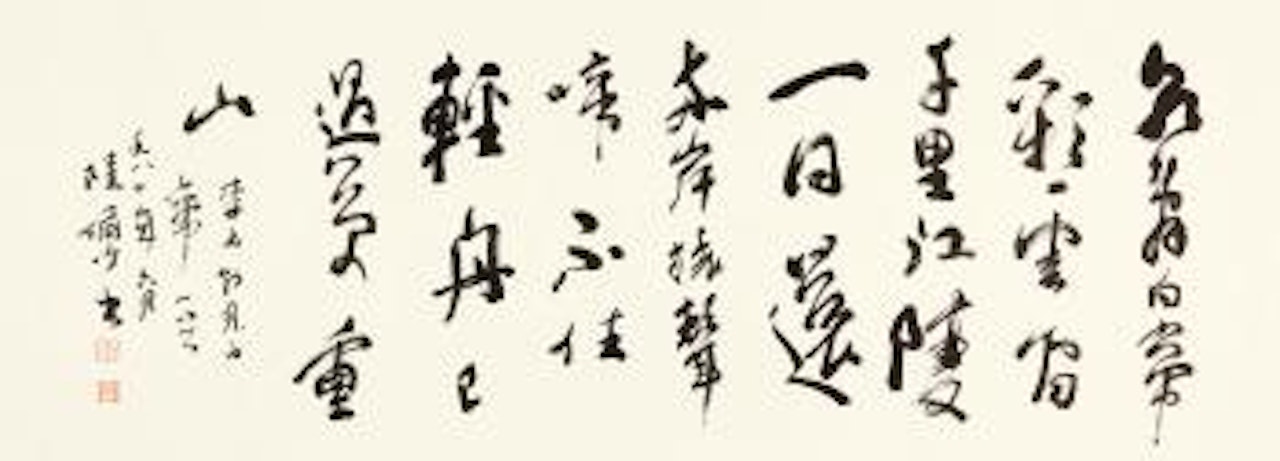 朝辭白帝
彩雲間
千里江陵
一日還
兩岸猿聲
啼不住
輕舟已
過萬重
山
李白
陸儼少書